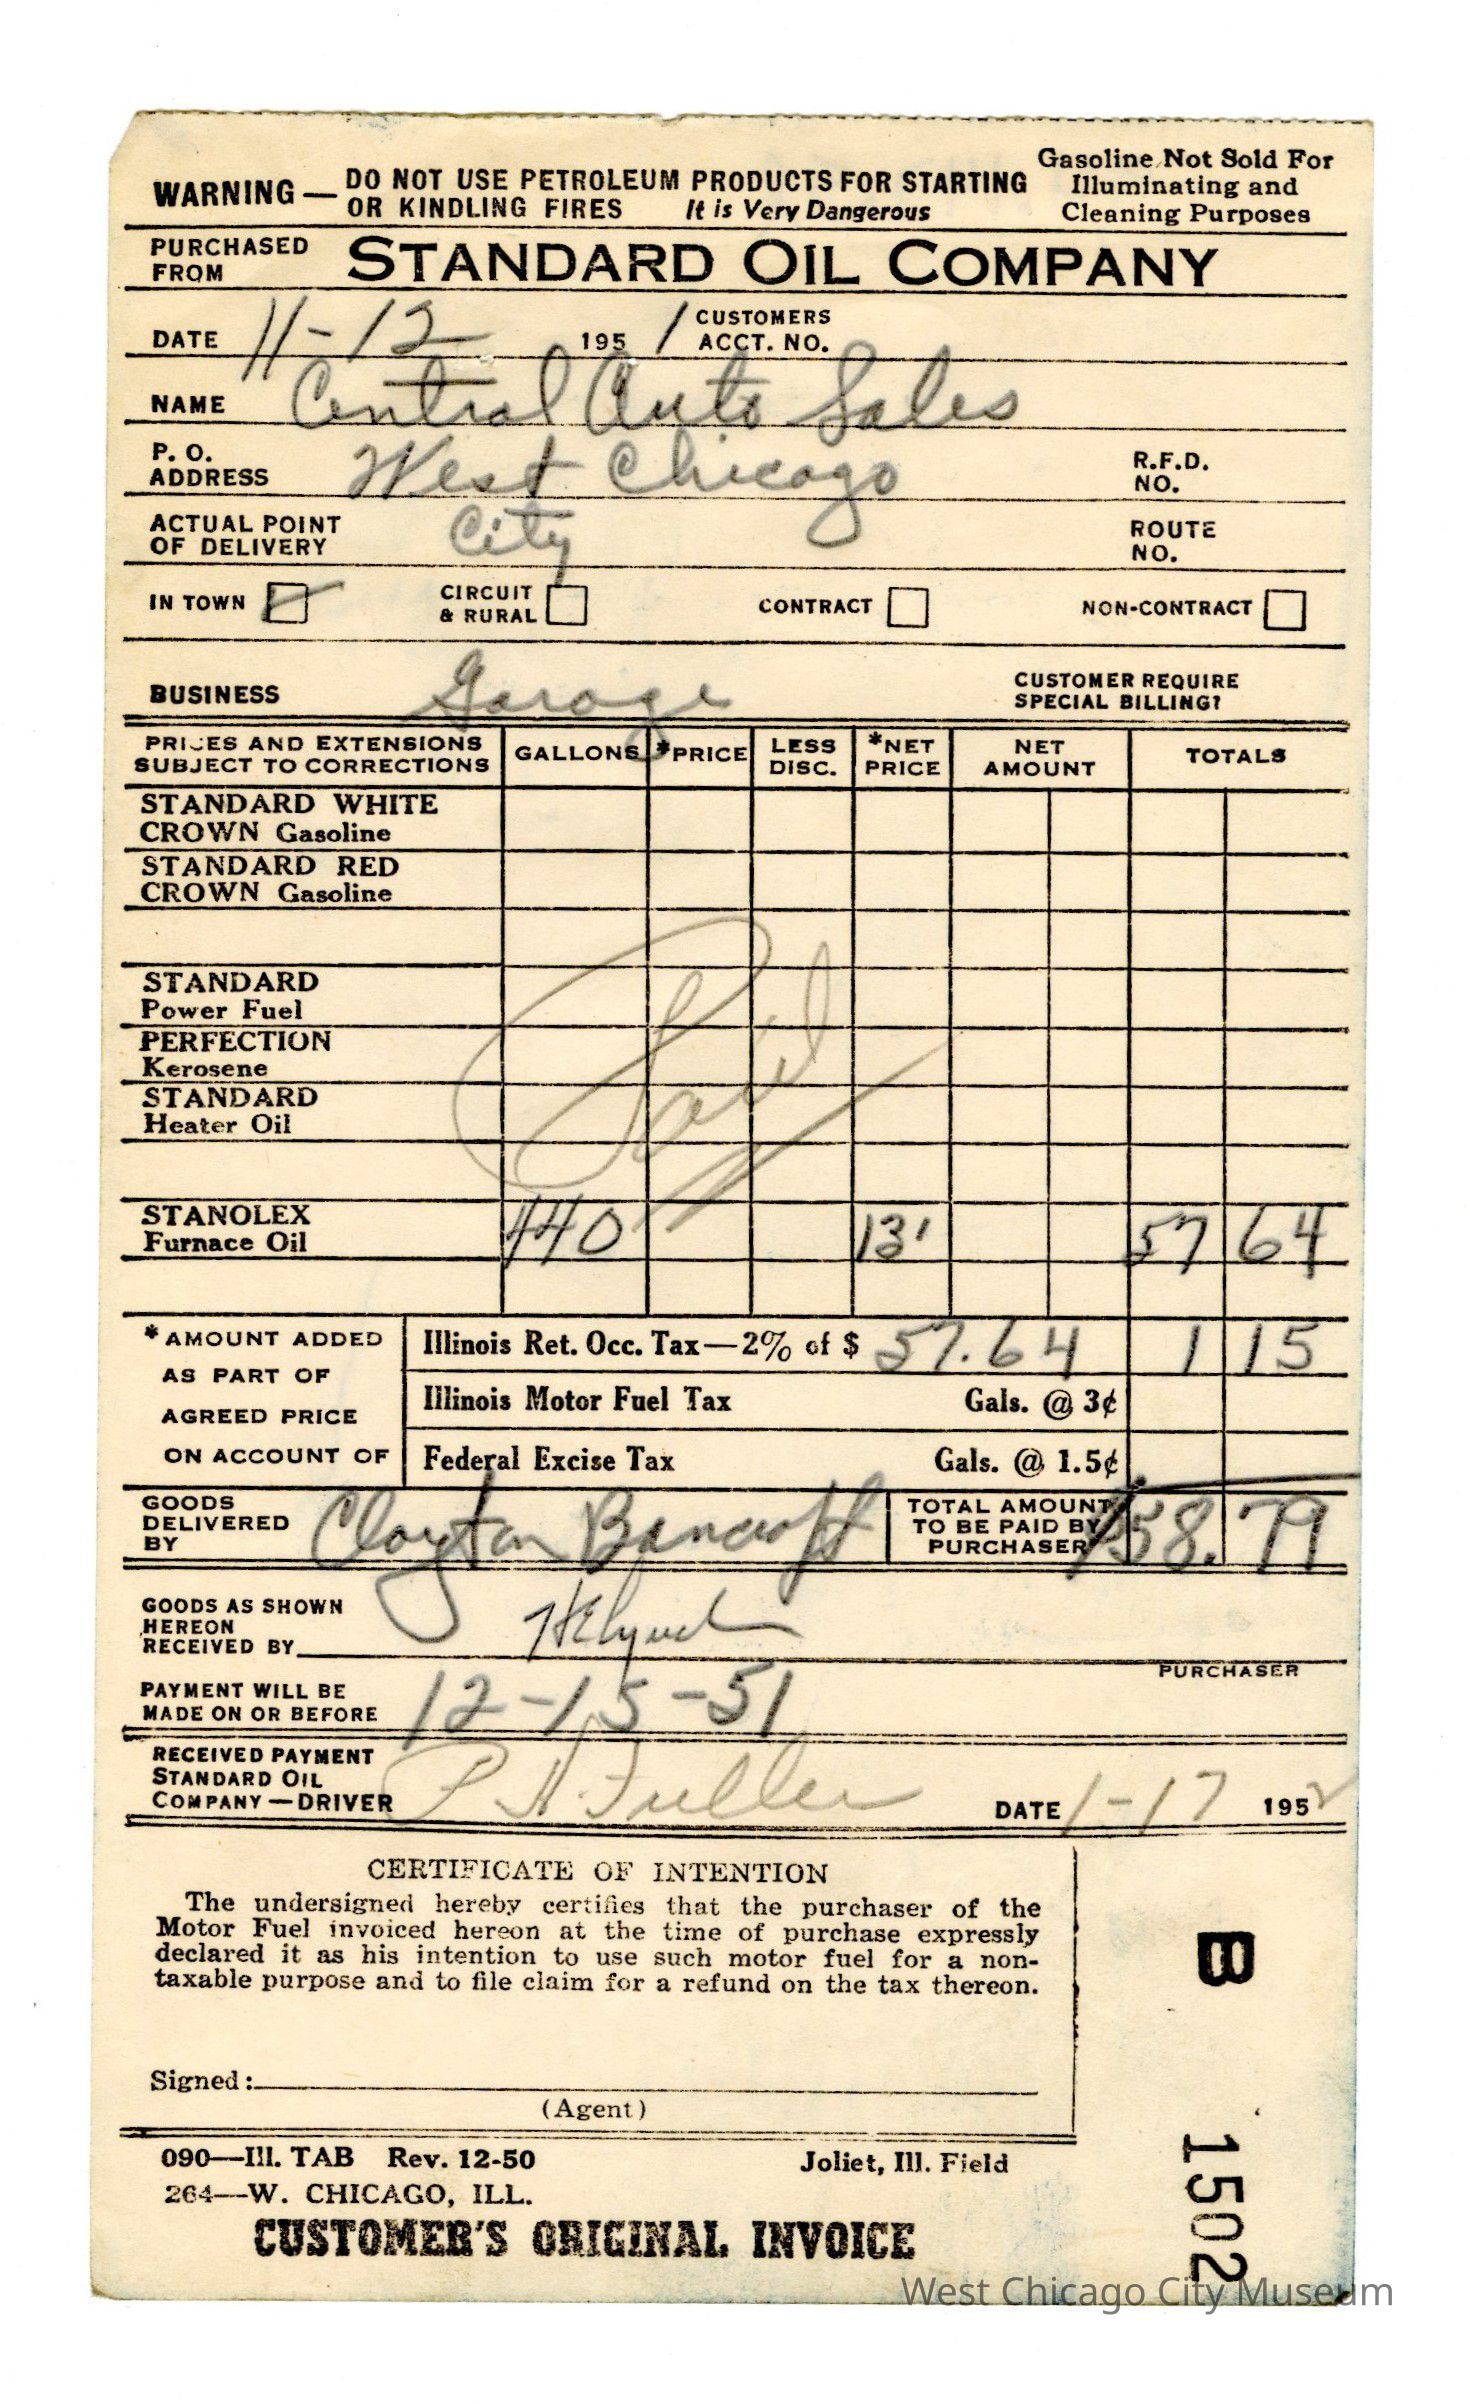 WARNING — DO NOT USE PETROLEUM PRODUCTS FOR STARTING
OR KINDLING FIRES It is Very Dangerous
Gasoline Not Sold For
Illuminating and
Cleaning Purposes
PURCHASED
FROM
STANDARD OIL COMPANY
DATE 11-12 1951 CUSTOMERS
ACCT. NO.
NAME Central Auto Sales
P. O.
ADDRESS West Chicago R.F.D.
NO.
ACTUAL POINT
OF DELIVERY City ROUTE
NO.
IN TOWN CIRCUIT
& RURAL CONTRACT NON-CONTRACT
BUSINESS Garage CUSTOMER REQUIRE
SPECIAL BILLING?
PRICES AND EXTENSIONS
SUBJECT TO CORRECTIONS
GALLONS *PRICE LESS
DISC. *NET
PRICE NET
AMOUNT TOTALS
STANDARD WHITE
CROWN Gasoline
STANDARD RED
CROWN Gasoline
STANDARD
Power Fuel
PERFECTION
Kerosene
STANDARD
Heater Oil
Paid
STANOLEX
Furnace Oil 440 13' 57 64
*AMOUNT ADDED
AS PART OF
AGREED PRICE
ON ACCOUNT OF
Illinois Ret. Occ. Tax—2% of $ 57.64 1 15
Illinois Motor Fuel Tax Gals. @ 3¢
Federal Excise Tax Gals. @ 1.5¢
GOODS
DELIVERED
BY Clayton Bancroft
TOTAL AMOUNT
TO BE PAID BY
PURCHASER 58.79
GOODS AS SHOWN
HEREON
RECEIVED BY HE Lynch
PURCHASER
PAYMENT WILL BE
MADE ON OR BEFORE 12-15-51
RECEIVED PAYMENT
STANDARD OIL
COMPANY — DRIVER P. H. Fuller DATE 1-17 1952
CERTIFICATE OF INTENTION
The undersigned hereby certifies that the purchaser of the
Motor Fuel invoiced hereon at the time of purchase expressly
declared it as his intention to use such motor fuel for a non-
taxable purpose and to file claim for a refund on the tax thereon.
Signed:
(Agent)
B 1502
090—Ill. TAB Rev. 12-50 Joliet, Ill. Field
264—W. CHICAGO, ILL.
CUSTOMER'S ORIGINAL INVOICE
West Chicago City Museum